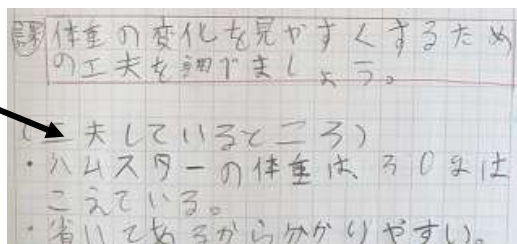 課 体重の変化を見やすくするため
の工夫を調べましょう。
(工夫しているところ)
・ハムスターの体重は、30gは
こえている。
・省いてあるから分かりやすい。